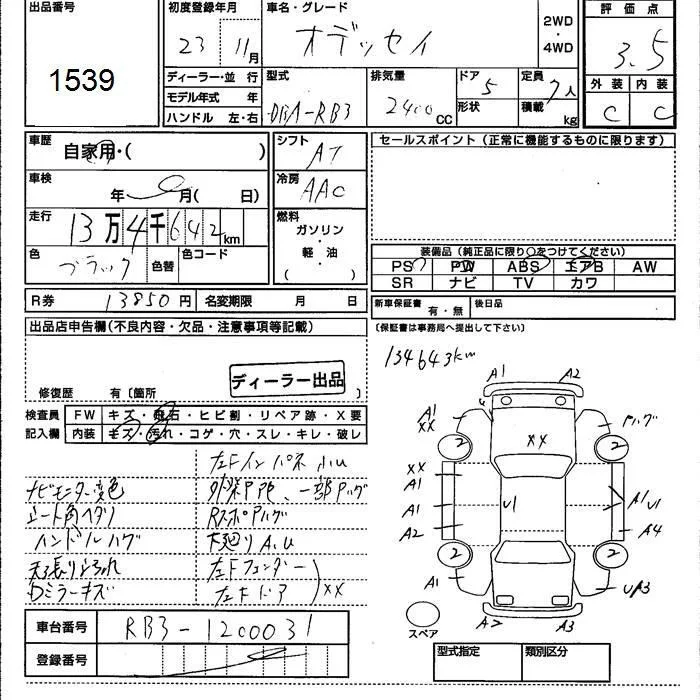 出品番号 1539
初度登録年月 23 11月
車名・グレード オデッセイ
2WD・4WD
評価点 3.5
外装 C 内装 C
ディーラー・並行
モデル年式 年
ハンドル 左・右
型式 DBA-RB3
排気量 2400cc
ドア 5
形状
定員 7人
積載 kg
車歴 自家用・( )
シフト AT
セールスポイント (正常に機能するものに限ります)
車検 年 月( 日)
冷房 AAC
走行 13万4千642km
燃料 ガソリン・軽・油 ( )
色 ブラック 色替 色コード
装備品(純正品に限り○をつけてください)
PS PW ABS エアB AW
SR ナビ TV カワ
R券 13850円 名変期限 月 日
新車保証書 有・無 後日品
(保証書は事務局へ提出して下さい)
出品店申告欄(不良内容・欠品・注意事項等記載)
134643km
ディーラー出品
修復歴 有〔箇所 〕
検査員記入欄
FW キズ・飛石・ヒビ割・リペア跡・X要
内装 キズ・汚れ・コゲ・穴・スレ・キレ・破レ
左Fインパネ小U
ナビモニター変色 外装P跡、一部Pハゲ
シート角ヘタリ RスポPハゲ
ハンドルハゲ 下廻りA.U
天張りよごれ 左Fフェンダー
Dミラーキズ 左Fドア XX
A1 A2
A1 XX Pハゲ
XX
2 2
XX A1 A1 U1 A1 U1
A2 A4
2 2
A1 UA3
A2 A3
スペア
車台番号 RB3-1200031
登録番号
型式指定 類別区分